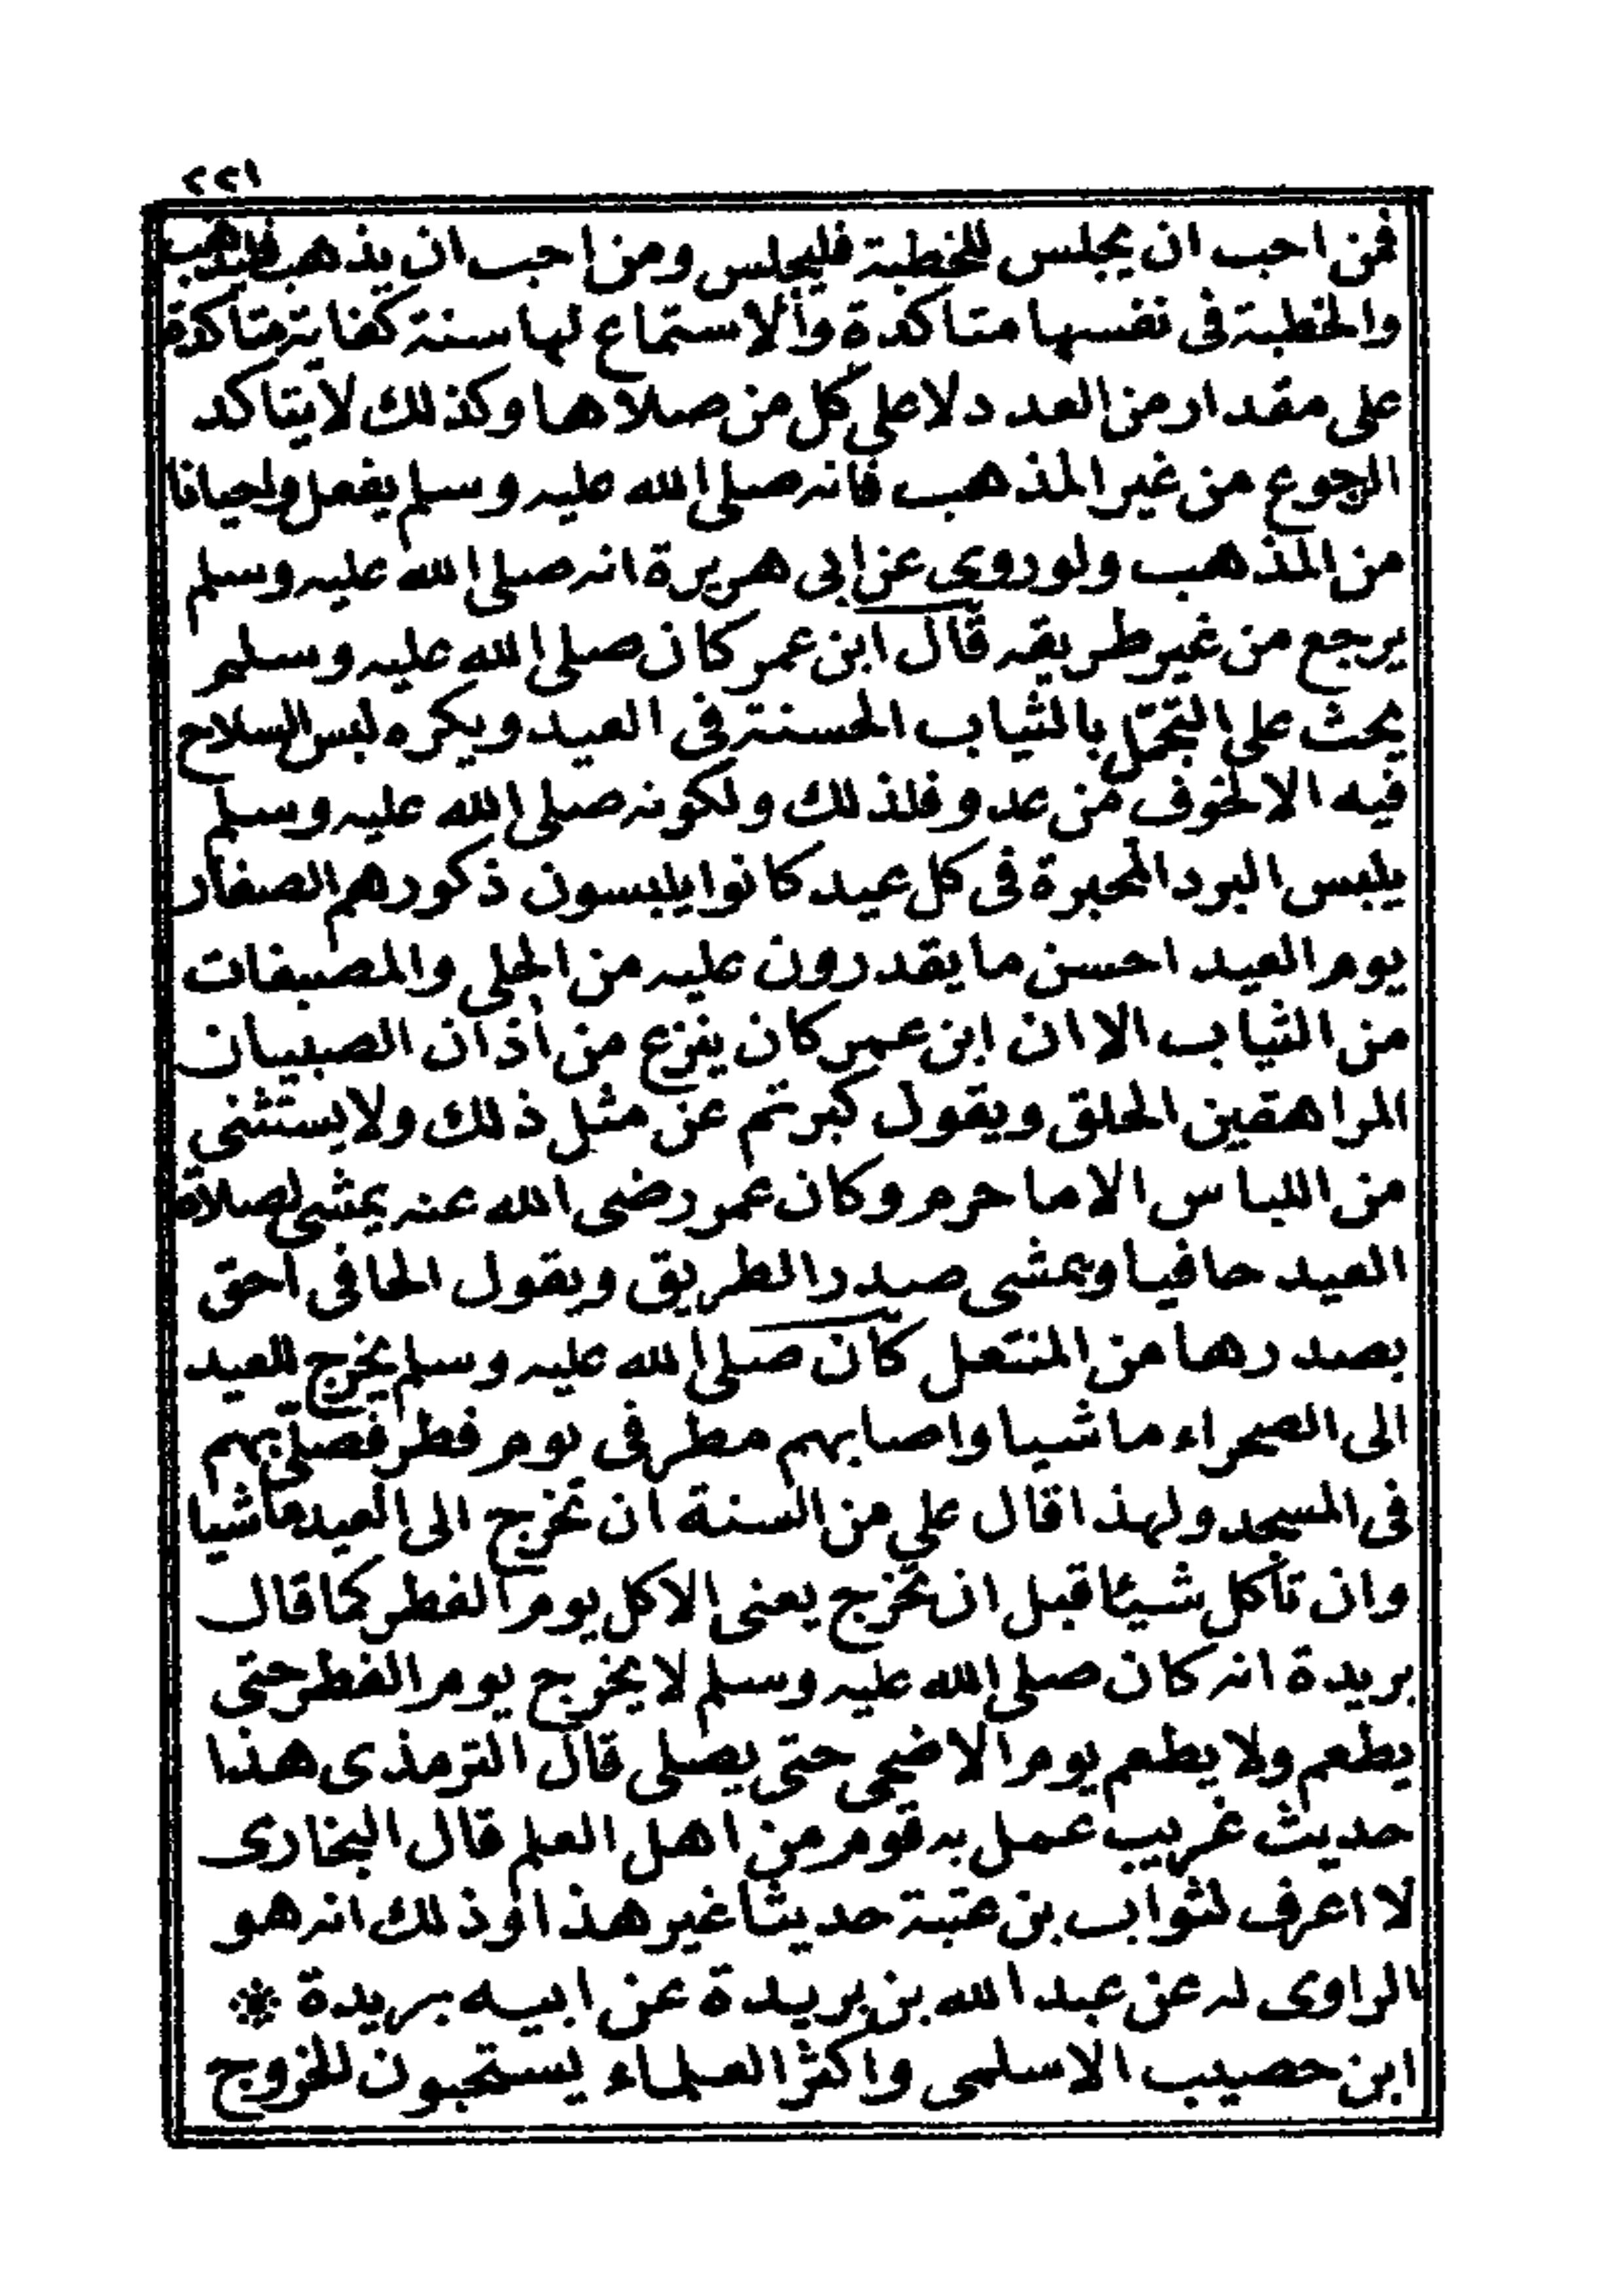 ٢٢١
فمن احب ان يجلس للخطبة فليجلس ومن احب ان يذهب فليذهب
والخطبة فى نفسها متاكدة والاستماع لها سنة كفاية متاكدة
على مقدار من العدد لا على كل من صلاها وكذلك لا يتاكد
الرجوع من غير المذهب فانه صلى الله عليه وسلم يفعل واحيانا
من المذهب ولو روى عن ابى هريرة انه صلى الله عليه وسلم
يرجع من غير طريقه قال ابن عمر كان صلى الله عليه وسلم
يحث على التجمل بالثياب الحسنة فى العيد ويكره لبس السلاح
فيه الا لخوف من عدو فلذلك ولكونه صلى الله عليه وسلم
يلبس البرد المحبرة فى كل عيد كانوا يلبسون ذكورهم الصغار
يوم العيد احسن ما يقدرون عليه من الحلى والمصبغات
من الثياب الا ان ابن عمر كان ينزع من أذان الصبيان
المراهقين الحلق ويقول كبرتم عن مثل ذلك ولا يستثنى
من اللباس الا ما حرم وكان عمر رضى الله عنه يمشى لصلاة
العيد حافيا ويمشى صدر الطريق ويقول الحافى احق
بصدرها من المنتعل كان صلى الله عليه وسلم يخرج للعيد
الى الصحراء ماشيا واصابهم مطر فى يوم فطر فصلى بهم
فى المسجد ولهذا قال على من السنة ان تخرج الى العيد ماشيا
وان تأكل شيئا قبل ان تخرج يعنى الاكل يوم الفطر كما قال
بريدة انه كان صلى الله عليه وسلم لا يخرج يوم الفطر حتى
يطعم ولا يطعم يوم الاضحى حتى يصلى قال الترمذى هذا
حديث غريب عمل به قوم من اهل العلم قال البخارى
لا اعرف لثواب بن عتبة حديثا غير هذا اوذلك انه هو
الراوى له عن عبد الله بن بريدة عن ابيه بريدة *
ابن حصيب الاسلمى واكثر العلماء يستحبون للخروج